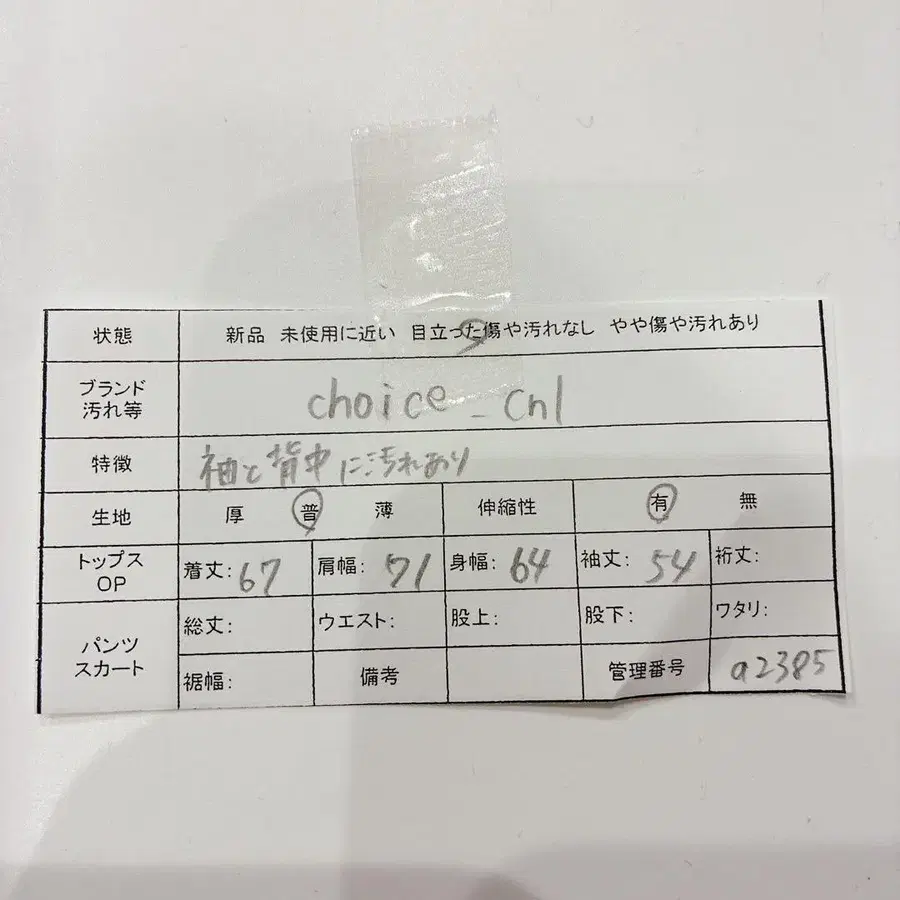 状態 新品 未使用に近い 目立った傷や汚れなし やや傷や汚れあり
ブランド
汚れ等 choice_Cnl
特徴 袖と背中に汚れあり
生地 厚 普 薄 伸縮性 有 無
トップス
OP 着丈:67 肩幅:71 身幅:64 袖丈:54 裄丈:
パンツ
スカート 総丈: ウエスト: 股上: 股下: ワタリ:
裾幅: 備考 管理番号 a2385